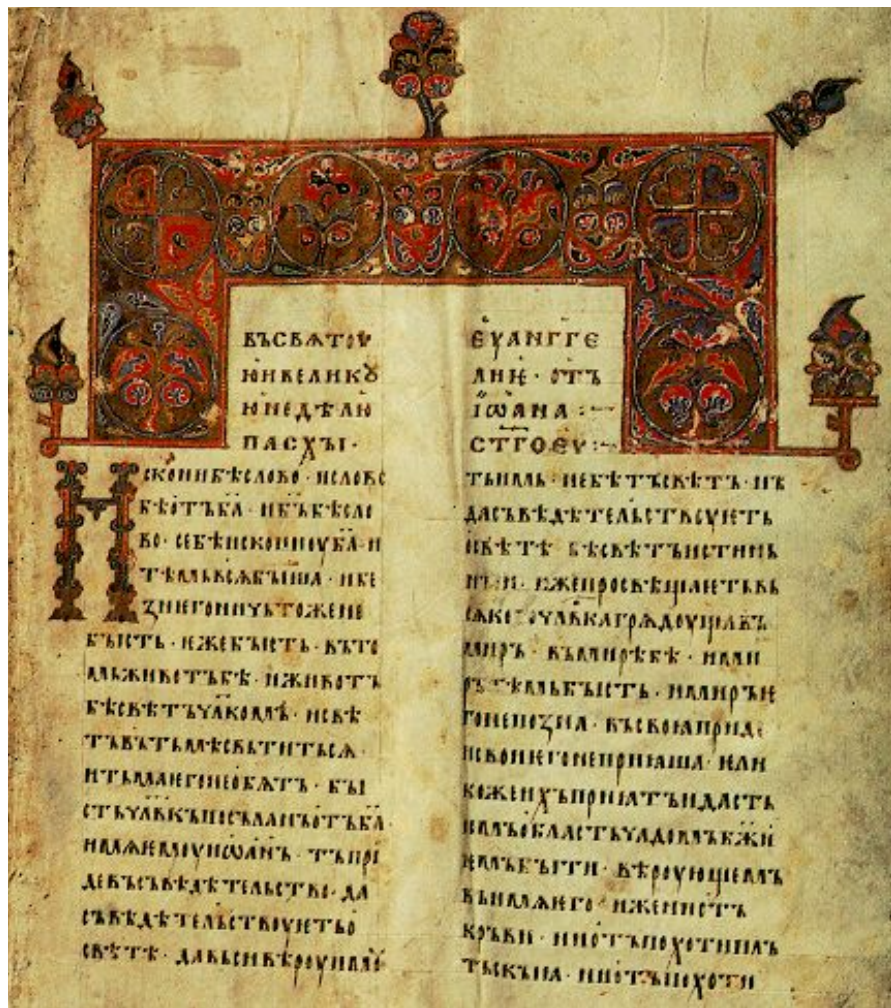 ВЪСВѦТОУ
ЮИВЕЛИКꙊ
ЮНЕДѢЛЮ
ПАСХЪІ·
ИСКОНИБѢСЛОВО·ИСЛОВО
БѢОТЪБА҃·ИБЪ҃БѢСЛО
ВО·СЕБѢИСКОНИОУБА҃·И
ТѢМЬВСѦБЪІША·ИБЕ
ЗНѤГОНИЧЬТОЖЕНЕ
БЪІСТЬ·ИЖЕБЪІСТЬ·ВЪТО
МЬЖИВОТЪБѢ·ИЖИВОТЪ
БѢСВѢТЪЧЛ҃КОМЪ·ИСВѢ
ТЪВЪТЬМѢСВЬТИТЬСѦ·
ИТЬМАѤГОНЕОБѦТЪ·БЪІ
СТЬЧЛ҃ВКЪПОСЪЛАНЪОТЪБА҃·
ИМѦѤМОУИѠАНЪ·ТЪПРІ
ДЕВЪСЪВѢДѢТЕЛЬСТВО·ДА
СЪВѢДѢТЕЛЬСТВОУѤТЬО
СВѢТѢ·ДАВЬСИВѢРОУИМОУ
ЕУАНГГЕ
ЛИѤ·ОТЪ
ІѠАНА:~
СТ҃ГОЕУ:~
ТЬИМЬ·НЕБѢТЪСВѢТЪ·НЪ
ДАСЪВѢДѢТЕЛЬСТВОУѤТЬ
ОСВѢТѢ·БѢСВѢТЪИСТИНЬ
НЪИ·ИЖЕПРОСВѢЩАѤТЬВЬ
СЯКОГОЧЛ҃ВКАГРѦДОУЩАВЪ
МИРЪ·ВЪМИРѢБѢ·ИМИ
РЪТѢМЬБЪІСТЬ·ИМИРЪѤ
ГОНЕПОЗНА·ВЪСВОꙖПРИДЕ
ИСВОИѤГОНЕПРИꙖША·ѤЛИ
КОЖЕИХЪПРИꙖТЪИДАСТЬ
ИМЪОБЛАСТЬЧАДОМЪБЖ҃И
ѤМЪБЪІТИ·ВѢРОУЮЩЕМЪ
ВЪИМѦѤГО·ИЖЕНИОТЪ
КРЪВИ·НИОТЪПОХОТИПЛЪ
ТЬСКЪІѦ·НИОТЪПОХОТИ